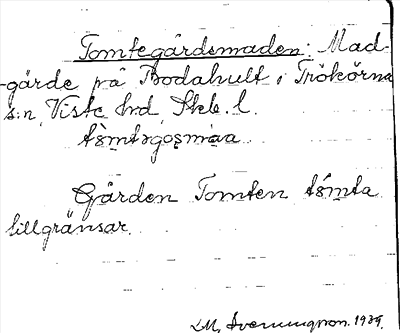 Tomtegärdsmaden: Mad-
gärde på Bodahult i Trökörna
s:n, Viste hrd, Skb. l.
tômtəgoṣmaa

Gården Tomten tômta
tillgränsar.

LM, Sverningson. 1939.